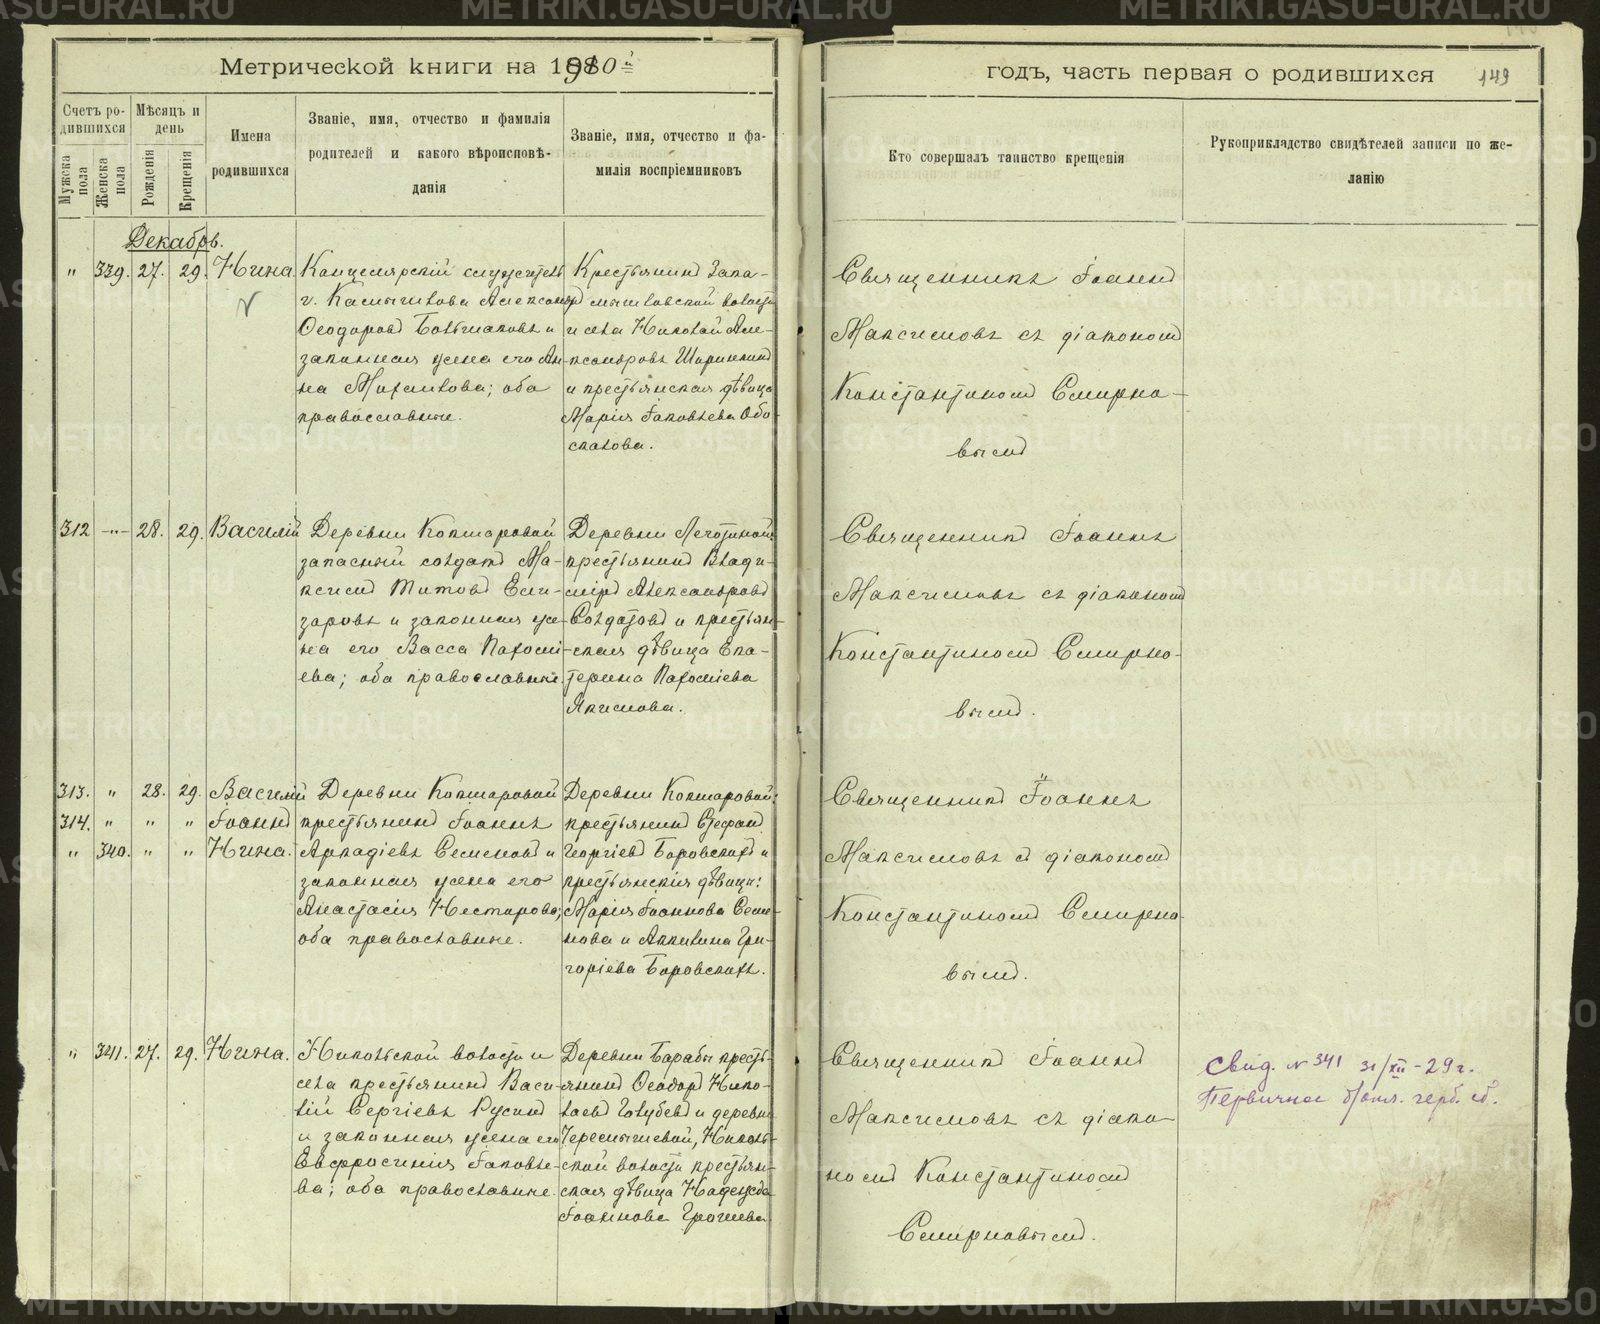 METRIKI.GASU-URAL.RU
Метрической книги на 1910й
годъ, часть первая о родившихся
149
Счетъ ро-
дившихся
Мѣсяцъ и
день
Мужска
пола
Женска
пола
Рожденія
Крещенія
Имена
родившихся
Званіе, имя, отчество и фамилія
родителей и какого вѣроисповѣ-
данія
Званіе, имя, отчество и фа-
милія воспріемниковъ
Кто совершалъ таинство крещенія
Рукоприкладство свидѣтелей записи по же-
ланію
Декабрь.
" 339. 27. 29. Нина
Канцелярскій служитель
г. Камышлова Александръ
Ѳеодоровъ Большаковъ и
законная жена его Ан-
на Михаилова; оба
православные.
Крестьянинъ Зака-
мышловской волости
и села Николай Але-
ксандровъ Ширинкинъ
и крестьянская дѣвица
Марія Іаковлева Обо-
скалова.
Священникъ Іоаннъ
Максимовъ съ діакономъ
Константиномъ Смирно-
вымъ
312 -"- 28. 29. Василій
Деревни Кокшаровой
запасный солдатъ Ма-
ксимъ Титовъ Ели-
заровъ и законная же-
на его Васса Пахомі-
ева; оба православные.
Деревни
крестьянинъ Влади-
міръ Александровъ
Солдатовъ и крестьян-
ская дѣвица Ека-
терина Пахоміева
Якимова.
Священникъ Іоаннъ
Максимовъ съ діакономъ
Константиномъ Смирно-
вымъ.
313. " 28. 29. Василій
314. " " " Іоаннъ
" 340. " " Нина.
Деревни Кокшаровой
крестьянинъ Іоаннъ
Аркадіевъ Семеновъ и
законная жена его
Анастасія Нестерова;
оба православные.
Деревни Кокшаровой:
крестьянинъ Стефанъ
Георгіевъ Боровскихъ и
крестьянскія дѣвицы:
Марія Іоаннова Семе-
нова и Акилина Гри-
горіева Боровскихъ.
Священникъ Іоаннъ
Максимовъ съ діакономъ
Константиномъ Смирно-
вымъ.
" 341. 27. 29. Нина.
Никольской волости и
села крестьянинъ Васи-
лій Сергіевъ Русинъ
и законная жена его
Евфросинія Іаковле-
ва; оба православные.
Деревни Барабы кресть-
янинъ Ѳеодоръ Нико-
лаевъ Голубевъ и деревни
Черемышевой, Николь-
ской волости крестьян-
ская дѣвица Надежда
Іоаннова Грачева.
Священникъ Іоаннъ
Максимовъ съ діако-
номъ Константиномъ
Смирновымъ.
Свид. № 341 31/XII-29г.
Первичное б/опл. герб. сб.